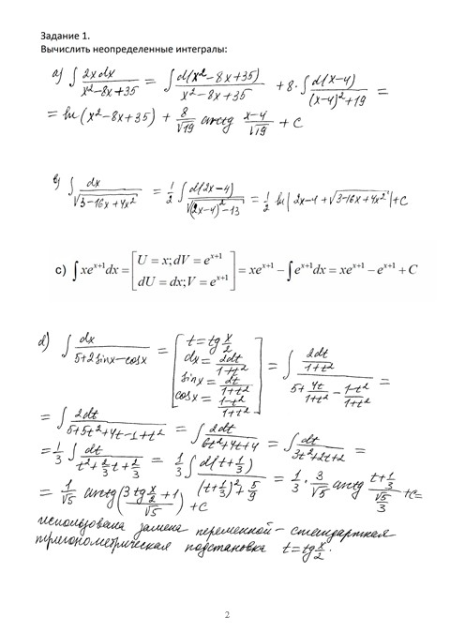 Задание 1.
Вычислить неопределенные интегралы:
a) ∫ 2xdx/(x²−8x+35) = ∫ d(x²−8x+35)/(x²−8x+35) + 8·∫ d(x−4)/((x−4)²+19) =
= ln(x²−8x+35) + 8/√19 arctg (x−4)/√19 + C
b) ∫ dx/√(3−16x+4x²) = 1/2 ∫ d(2x−4)/√((2x−4)²−13) = 1/2 ln|2x−4+√(3−16x+4x²)|+C
c) ∫ xe^(x+1)dx = [U = x; dV = e^(x+1) dU = dx; V = e^(x+1)] = xe^(x+1) − ∫ e^(x+1)dx = xe^(x+1) − e^(x+1) + C
d) ∫ dx/(5+2sinx−cosx) = [t = tg x/2 dx = 2dt/(1+t²) sinx = 2t/(1+t²) cosx = (1−t²)/(1+t²)] = ∫ (2dt/(1+t²))/(5+4t/(1+t²)−(1−t²)/(1+t²)) =
= ∫ 2dt/(5+5t²+4t−1+t²) = ∫ 2dt/(6t²+4t+4) = ∫ dt/(3t²+2t+2) =
= 1/3 ∫ dt/(t²+2/3t+2/3) = 1/3 ∫ d(t+1/3)/((t+1/3)²+5/9) = 1/3 · 3/√5 arctg (t+1/3)/(√5/3) + C =
= 1/√5 arctg((3tg x/2 +1)/√5) + C
использована замена переменной – стандартная
тригонометрическая подстановка t = tg x/2.
2